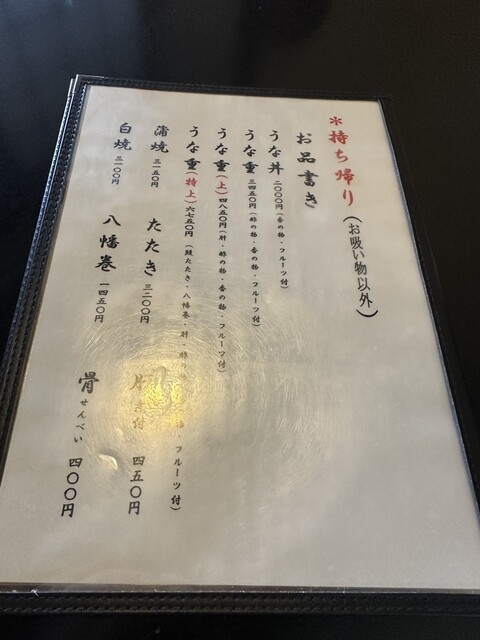 ＊持ち帰り(お吸い物以外)
お品書き
うな丼 二〇〇〇円(香の物・フルーツ付)
うな重 三四五〇円(酢の物・香の物・フルーツ付)
うな重(上) 四八五〇円(肝・酢の物・香の物・フルーツ付)
うな重(特上) 六七五〇円(鰻たたき・八幡巻・肝・酢の物・フルーツ付)
蒲焼 三一五〇円 たたき 三二〇〇円 四五〇円
白焼 三一〇〇円 八幡巻 一四五〇円 骨せんべい 四〇〇円